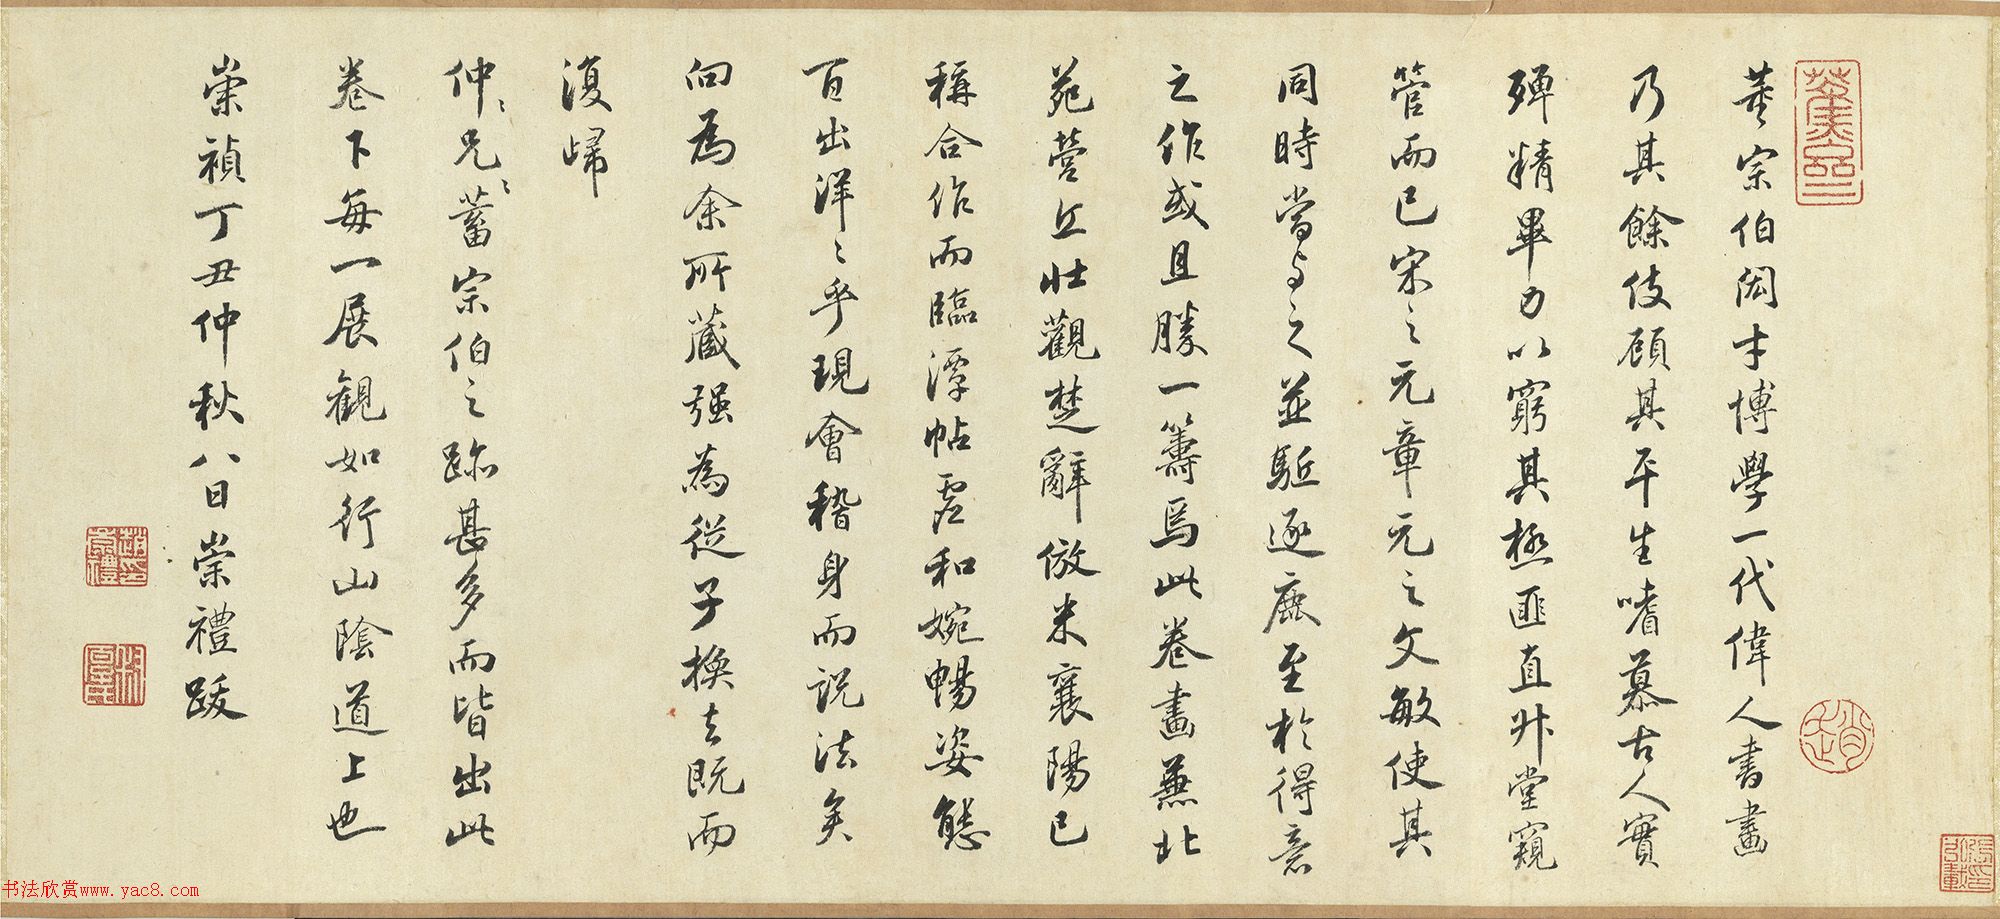 董宗伯閎才博學一代偉人書畫
乃其餘伎顧其平生嗜慕古人實
殫精畢力以窮其極匪直升堂窺
管而已宋之元章元之文敏使其
同時當与之並駈逐鹿至於得意
之作或且勝一籌焉此卷畫兼北
苑營丘壯觀楚辭倣米襄陽已
稱合作而臨潭帖虛和婉暢姿態
百出洋〻乎現會稽身而說法矣
向為余所藏强為從子換去既而
復歸
仲〻兄〻蓄宗伯之跡甚多而皆出此
卷下每一展觀如行山陰道上也
崇禎丁丑仲秋八日崇禮跋
书法欣赏www.yac8.com